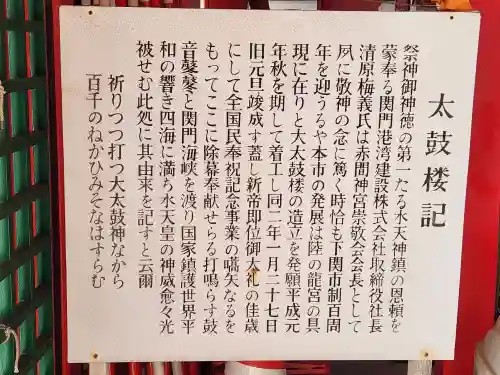 太鼓楼記
祭神御神徳の第一たる水天神鎮の恩頼を
蒙奉る関門港湾建設株式会社取締役社長
清原梅義氏は赤間神宮崇敬会会長として
夙に敬神の念に篤く時恰も下関市制百周
年を迎うるや本市の発展は陸の龍宮の具
現に在りと大太鼓楼の造立を発願平成元
年秋を期して着工し同二年一月二十七日
旧元旦竣成す蓋し新帝即位御大礼の佳歳
にして全国民奉祝記念事業の嚆矢なるを
もってここに除幕奉献せらる打鳴らす鼓
音鼕鼕と関門海峡を渡り国家鎮護世界平
和の響き四海に満ち水天皇の神威愈々光
被せむ此処に其由来を記すと云爾
祈りつつ打つ大太鼓神ながら
百千のねかひみそなはすらむ